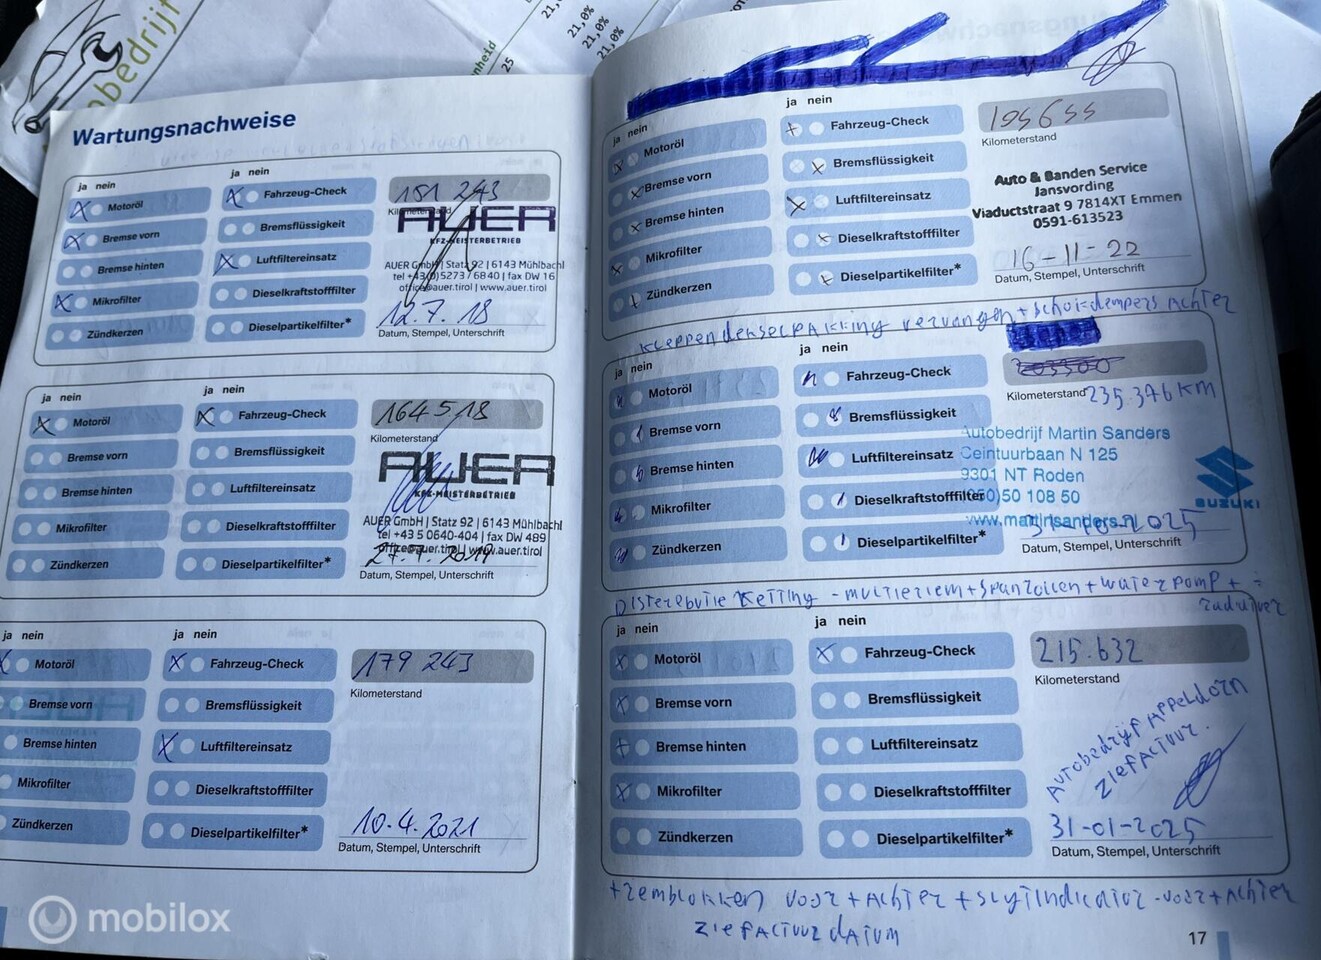 nheid
25
21,0%
21,0%
21,0%
21,0%
Wartungsnachweise
ja nein
ja nein
Motoröl
Fahrzeug-Check
151 243
Bremse vorn
Bremsflüssigkeit
AUER
KFZ-MEISTERBETRIEB
Bremse hinten
Luftfiltereinsatz
AUER GmbH | Statz 92 | 6143 Mühlbachl
tel +43(0)5273/6840 | fax DW 16
office@auer.tirol | www.auer.tirol
Mikrofilter
Dieselkraftstofffilter
12.7.18
Zündkerzen
Dieselpartikelfilter*
Datum, Stempel, Unterschrift
ja nein
ja nein
Motoröl
Fahrzeug-Check
164518
Kilometerstand
Bremse vorn
Bremsflüssigkeit
AUER
KFZ-MEISTERBETRIEB
Bremse hinten
Luftfiltereinsatz
AUER GmbH | Statz 92 | 6143 Mühlbachl
tel +43 5 0640-404 | fax DW 489
office@auer.tirol | www.auer.tirol
Mikrofilter
Dieselkraftstofffilter
Zündkerzen
Dieselpartikelfilter*
Datum, Stempel, Unterschrift
ja nein
ja nein
Motoröl
Fahrzeug-Check
179 243
Kilometerstand
Bremse vorn
Bremsflüssigkeit
Bremse hinten
Luftfiltereinsatz
Mikrofilter
Dieselkraftstofffilter
10.4.2021
Zündkerzen
Dieselpartikelfilter*
Datum, Stempel, Unterschrift
mobilox
ja nein
ja nein
Motoröl
Fahrzeug-Check
195655
Kilometerstand
Bremse vorn
Bremsflüssigkeit
Auto & Banden Service
Jansvording
Viaductstraat 9 7814XT Emmen
0591-613523
Bremse hinten
Luftfiltereinsatz
Mikrofilter
Dieselkraftstofffilter
16-11-22
Zündkerzen
Dieselpartikelfilter*
Datum, Stempel, Unterschrift
kleppendekselpakking vervangen + schokdempers achter
ja nein
ja nein
Motoröl
Fahrzeug-Check
Kilometerstand 235.376 KM
Bremse vorn
Bremsflüssigkeit
Autobedrijf Martin Sanders
Ceintuurbaan N 125
9301 NT Roden
50 108 50
www.martinsanders.nl
SUZUKI
Bremse hinten
Luftfiltereinsatz
Mikrofilter
Dieselkraftstofffilter
2025
Zündkerzen
Dieselpartikelfilter*
Datum, Stempel, Unterschrift
Ketting - multieriem + spanrollen + waterpomp +
ja nein
ja nein
Motoröl
Fahrzeug-Check
215.632
Kilometerstand
Bremse vorn
Bremsflüssigkeit
Autobedrijf Appeldorn
zie factuur.
Bremse hinten
Luftfiltereinsatz
Mikrofilter
Dieselkraftstofffilter
31-01-2025
Zündkerzen
Dieselpartikelfilter*
Datum, Stempel, Unterschrift
+ remblokken voor + achter + slijtindicator - voor + achter
zie factuur datum
17